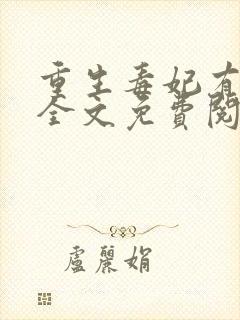 重生毒妃有
全文免費閱
盧麗娟